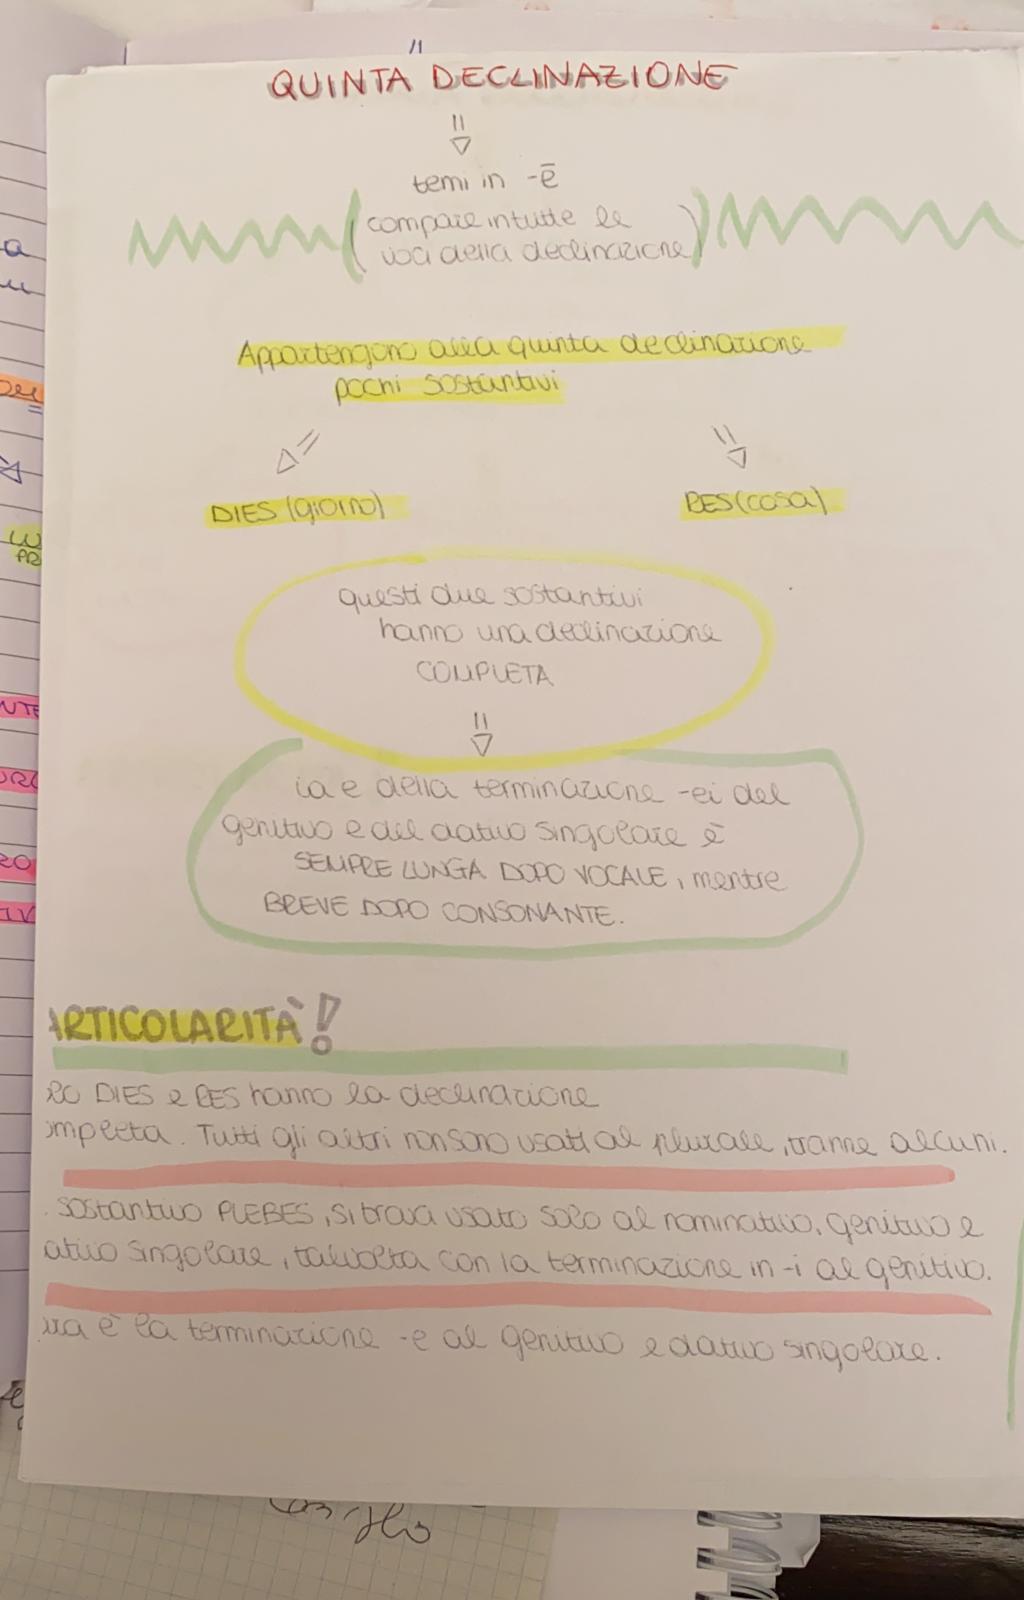 QUINTA DECLINAZIONE
temi in -ē
(compare in tutte le
voci della declinazione)
Appartengono alla quinta declinazione
pochi sostantivi
DIES (giorno)
RES (cosa)
questi due sostantivi
hanno una declinazione
COMPLETA
la e della terminazione -ei del
genitivo e del dativo singolare è
SEMPRE LUNGA DOPO VOCALE, mentre
BREVE DOPO CONSONANTE.
ARTICOLARITÀ!
lo DIES e RES hanno la declinazione
ompleta. Tutti gli altri non sono usati al plurale, tranne alcuni.
sostantivo PLEBES, si trova usato solo al nominativo, genitivo e
ativo singolare, talvolta con la terminazione in -i al genitivo.
è la terminazione -e al genitivo e dativo singolare.